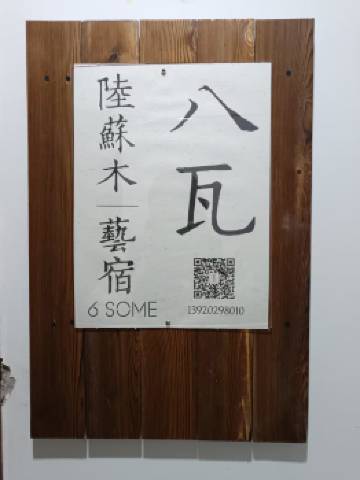 八瓦
陸蘇木｜藝宿
6 SOME
13920298010